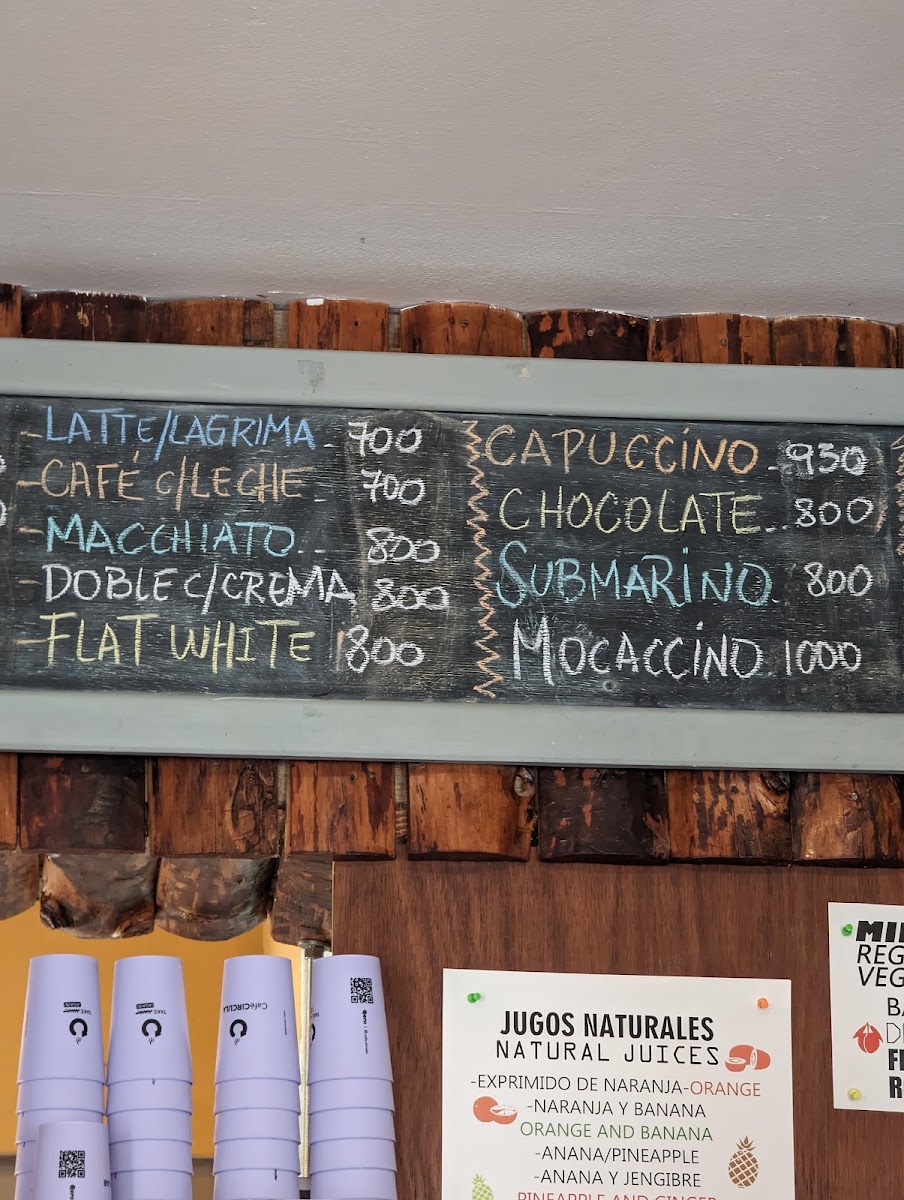 LATTE/LAGRIMA - 700
CAFÉ C/LECHE - 700
MACCHIATO.. 800
DOBLE C/CREMA 800
FLAT WHITE 800
CAPUCCÍNO - 930
CHOCOLATE.. 800
SUBMARINO. 800
MOCACCÍNO. 1000
TAKE AWAY AGAIN
TAKE AWAY AGAIN
CaféCÍRCULA
JUGOS NATURALES
NATURAL JUICES
-EXPRIMIDO DE NARANJA-ORANGE
-NARANJA Y BANANA
ORANGE AND BANANA
-ANANA/PINEAPPLE
-ANANA Y JENGIBRE
PINEAPPLE AND GINGER